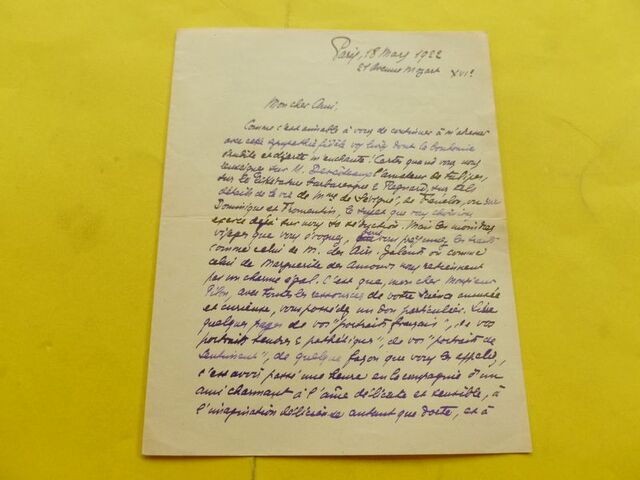 Paris, 18 Mars 1922
21 Avenue Mozart XVIe
Mon cher Ami,
Comme c'est aimable à vous de continuer à m'adresser
avec cette sympathie fidèle vos livres dont la bonhomie
érudite et diserte m'enchante. Certes quand vous nous
renseignez sur M. l'amateur de tulipes,
sur la Barbaresque de Regnard, sur tels
détails de la vie de Mme de Sévigné, de Fénelon, ou sur
Dominique et Fromentin, le sujet que vous choisissez
exerce déjà sur nous sa séduction. Mais les moindres
visages que vous évoquez, dont vous les traits
comme celui de M. des ou comme
celui de Marguerite des Amours nous retiennent
par un charme égal. C'est que, mon cher Monsieur
Pilon, avec toutes les ressources de votre science
et curieuse, vous possédez un don particulier. Lire
quelques pages de vos "portraits français", de vos
portraits tendres et pathétiques", de vos "portraits de
sentiment", de quelque façon que vous les appeliez,
c'est avoir passé une heure en la compagnie d'un
ami charmant à l'âme délicate et sensible, à
l'imagination délicieuse autant que docte, et à